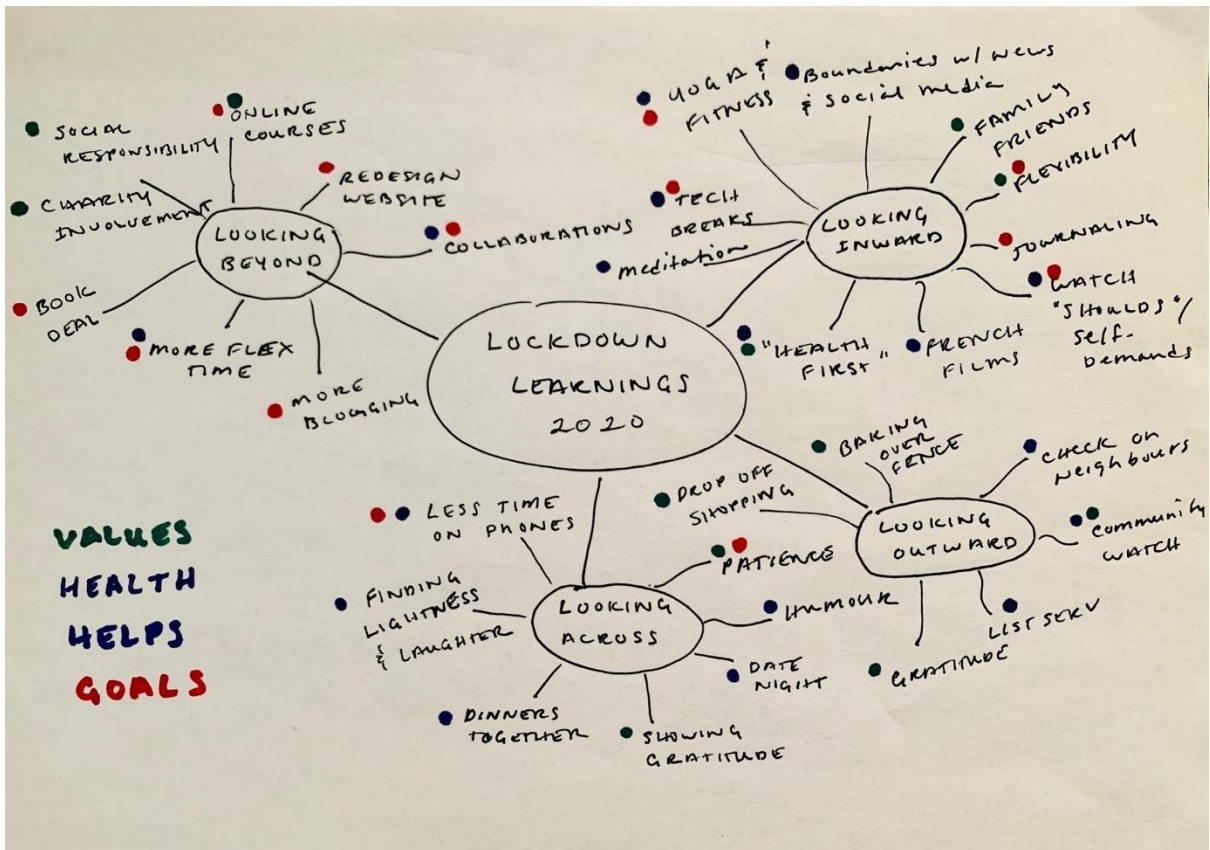 LOCKDOWN
LEARNINGS
2020
LOOKING
BEYOND
SOCIAL
RESPONSIBILITY
ONLINE
COURSES
REDESIGN
WEBSITE
COLLABORATIONS
CHARITY
INVOLVEMENT
BOOK
DEAL
MORE FLEX
TIME
MORE
BLOGGING
LOOKING
INWARD
YOGA &
FITNESS
Boundaries w/ News
& social media
FAMILY
FRIENDS
FLEXIBILITY
JOURNALING
WATCH
"SHOULDS"/
self-
Demands
FRENCH
FILMS
"HEALTH
FIRST"
meditation
TECH
BREAKS
LOOKING
OUTWARD
BAKING
OVER
FENCE
CHECK on
Neighbours
Community
WATCH
LIST SERV
GRATITUDE
DROP OFF
SHOPPING
LOOKING
ACROSS
LESS TIME
ON PHONES
PATIENCE
HUMOUR
DATE
NIGHT
SHOWING
GRATITUDE
DINNERS
TOGETHER
FINDING
LIGHTNESS
& LAUGHTER
VALUES
HEALTH
HELPS
GOALS